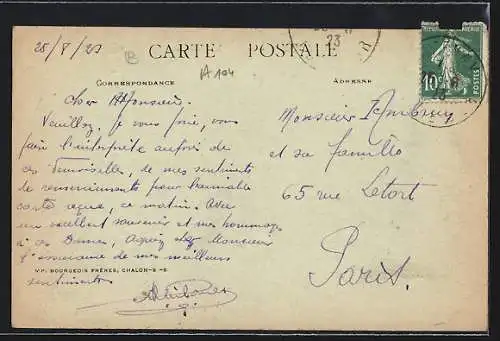 25/8/23
CARTE POSTALE
A 104
CORRESPONDANCE
ADRESSE
Cher Monsieur.
Veuillez, je vous prie, vous
faire l'interprète auprès de
ces Demoiselles, de mes sentiments
de remerciements pour l'aimable
carte reçue, ce matin. Avec
un excellent souvenir et mes hommages
à ces Dames, Agréez cher Monsieur
l'assurance de mes meilleurs
sentiments
Monsieur
et sa famille
65 rue Letort
Paris.
IMP. BOURGEOIS FRÈRES, CHALON-S-S
23
10
POSTES